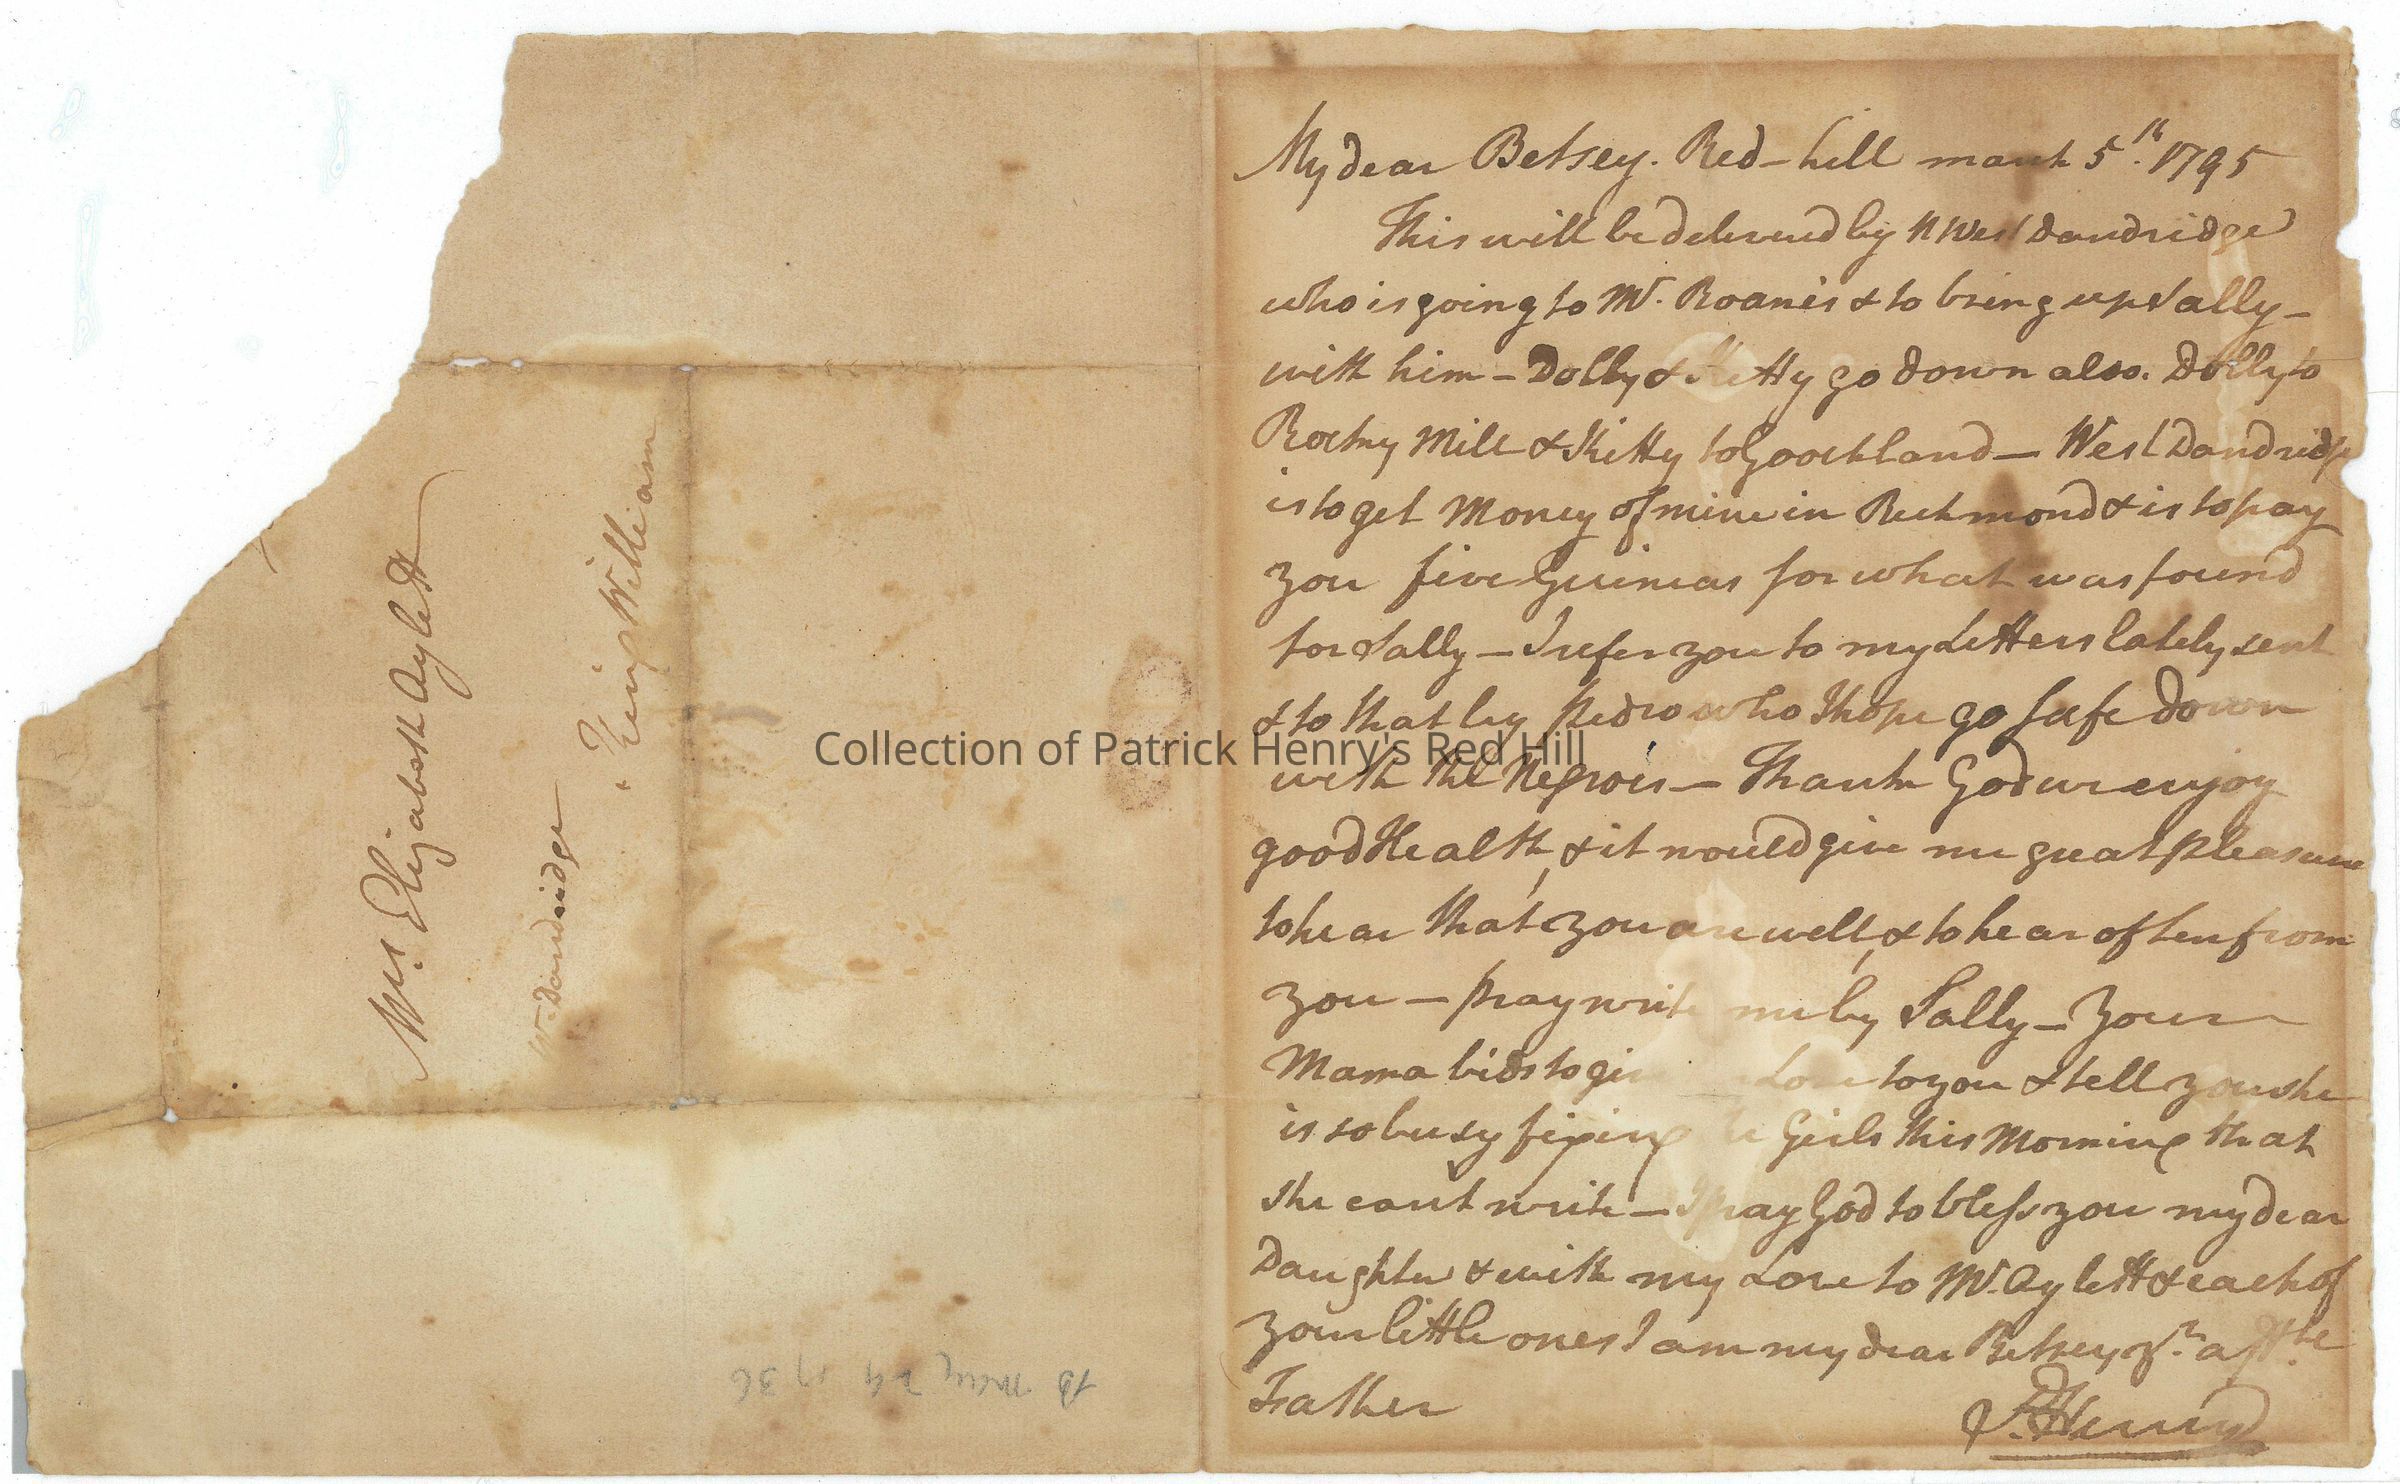 Mrs. Elizabeth Aylett
W. Dandridge
King William
My dear Betsey. Red-hill march 5th. 1795
This will be delivered by West Dandridge
who is going to Mr. Roane's & to bring up Sally —
with him — Dolly & Kitty go down also. Dolly to
Rocky Mill & Kitty to Goochland — West Dandridge
is to get Money of mine in Richmond & is to pay
you five Guineas for what was found
for Sally — I refer you to my Letters lately sent
& to that by Pedro who I hope go safe down
with the Negroes — Thank God we enjoy
good Health, & it would give me great pleasure
to hear that you are well, & to hear often from
you — pray write me by Sally — Your
Mama bids to give Love to you & tell you she
is so busy fixing the Girls this Morning that
she cant write — I pray God to bless you my dear
Daughter & with my Love to Mr. Aylett & each of
your little ones I am my dear Betsey yr. affte.
Father
P. Henry
Collection of Patrick Henry's Red Hill